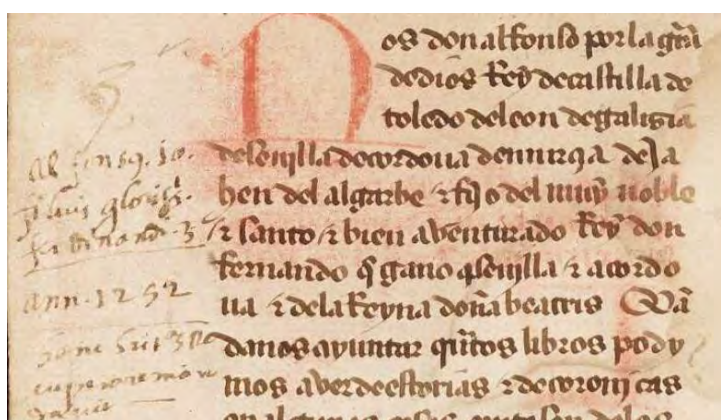 Nos don alfonso por la grã
de dios Rey de castilla de
toledo de leon de galisia
de seuilla de cordoua de murçia de Ja
hen del algarbe ⁊ fijo del muy noble
⁊ santo ⁊ bien aventurado Rey don
fernando q̃ gano a seuilla ⁊ a cordo
ua ⁊ de la Reyna doña beatris Mã
damos ayuntar qñtos libros pody
mos aver de estorias ⁊ de coronicas
Alfonsq. 10.
filius glorisi.
ferdinandi 3
ann. 1252